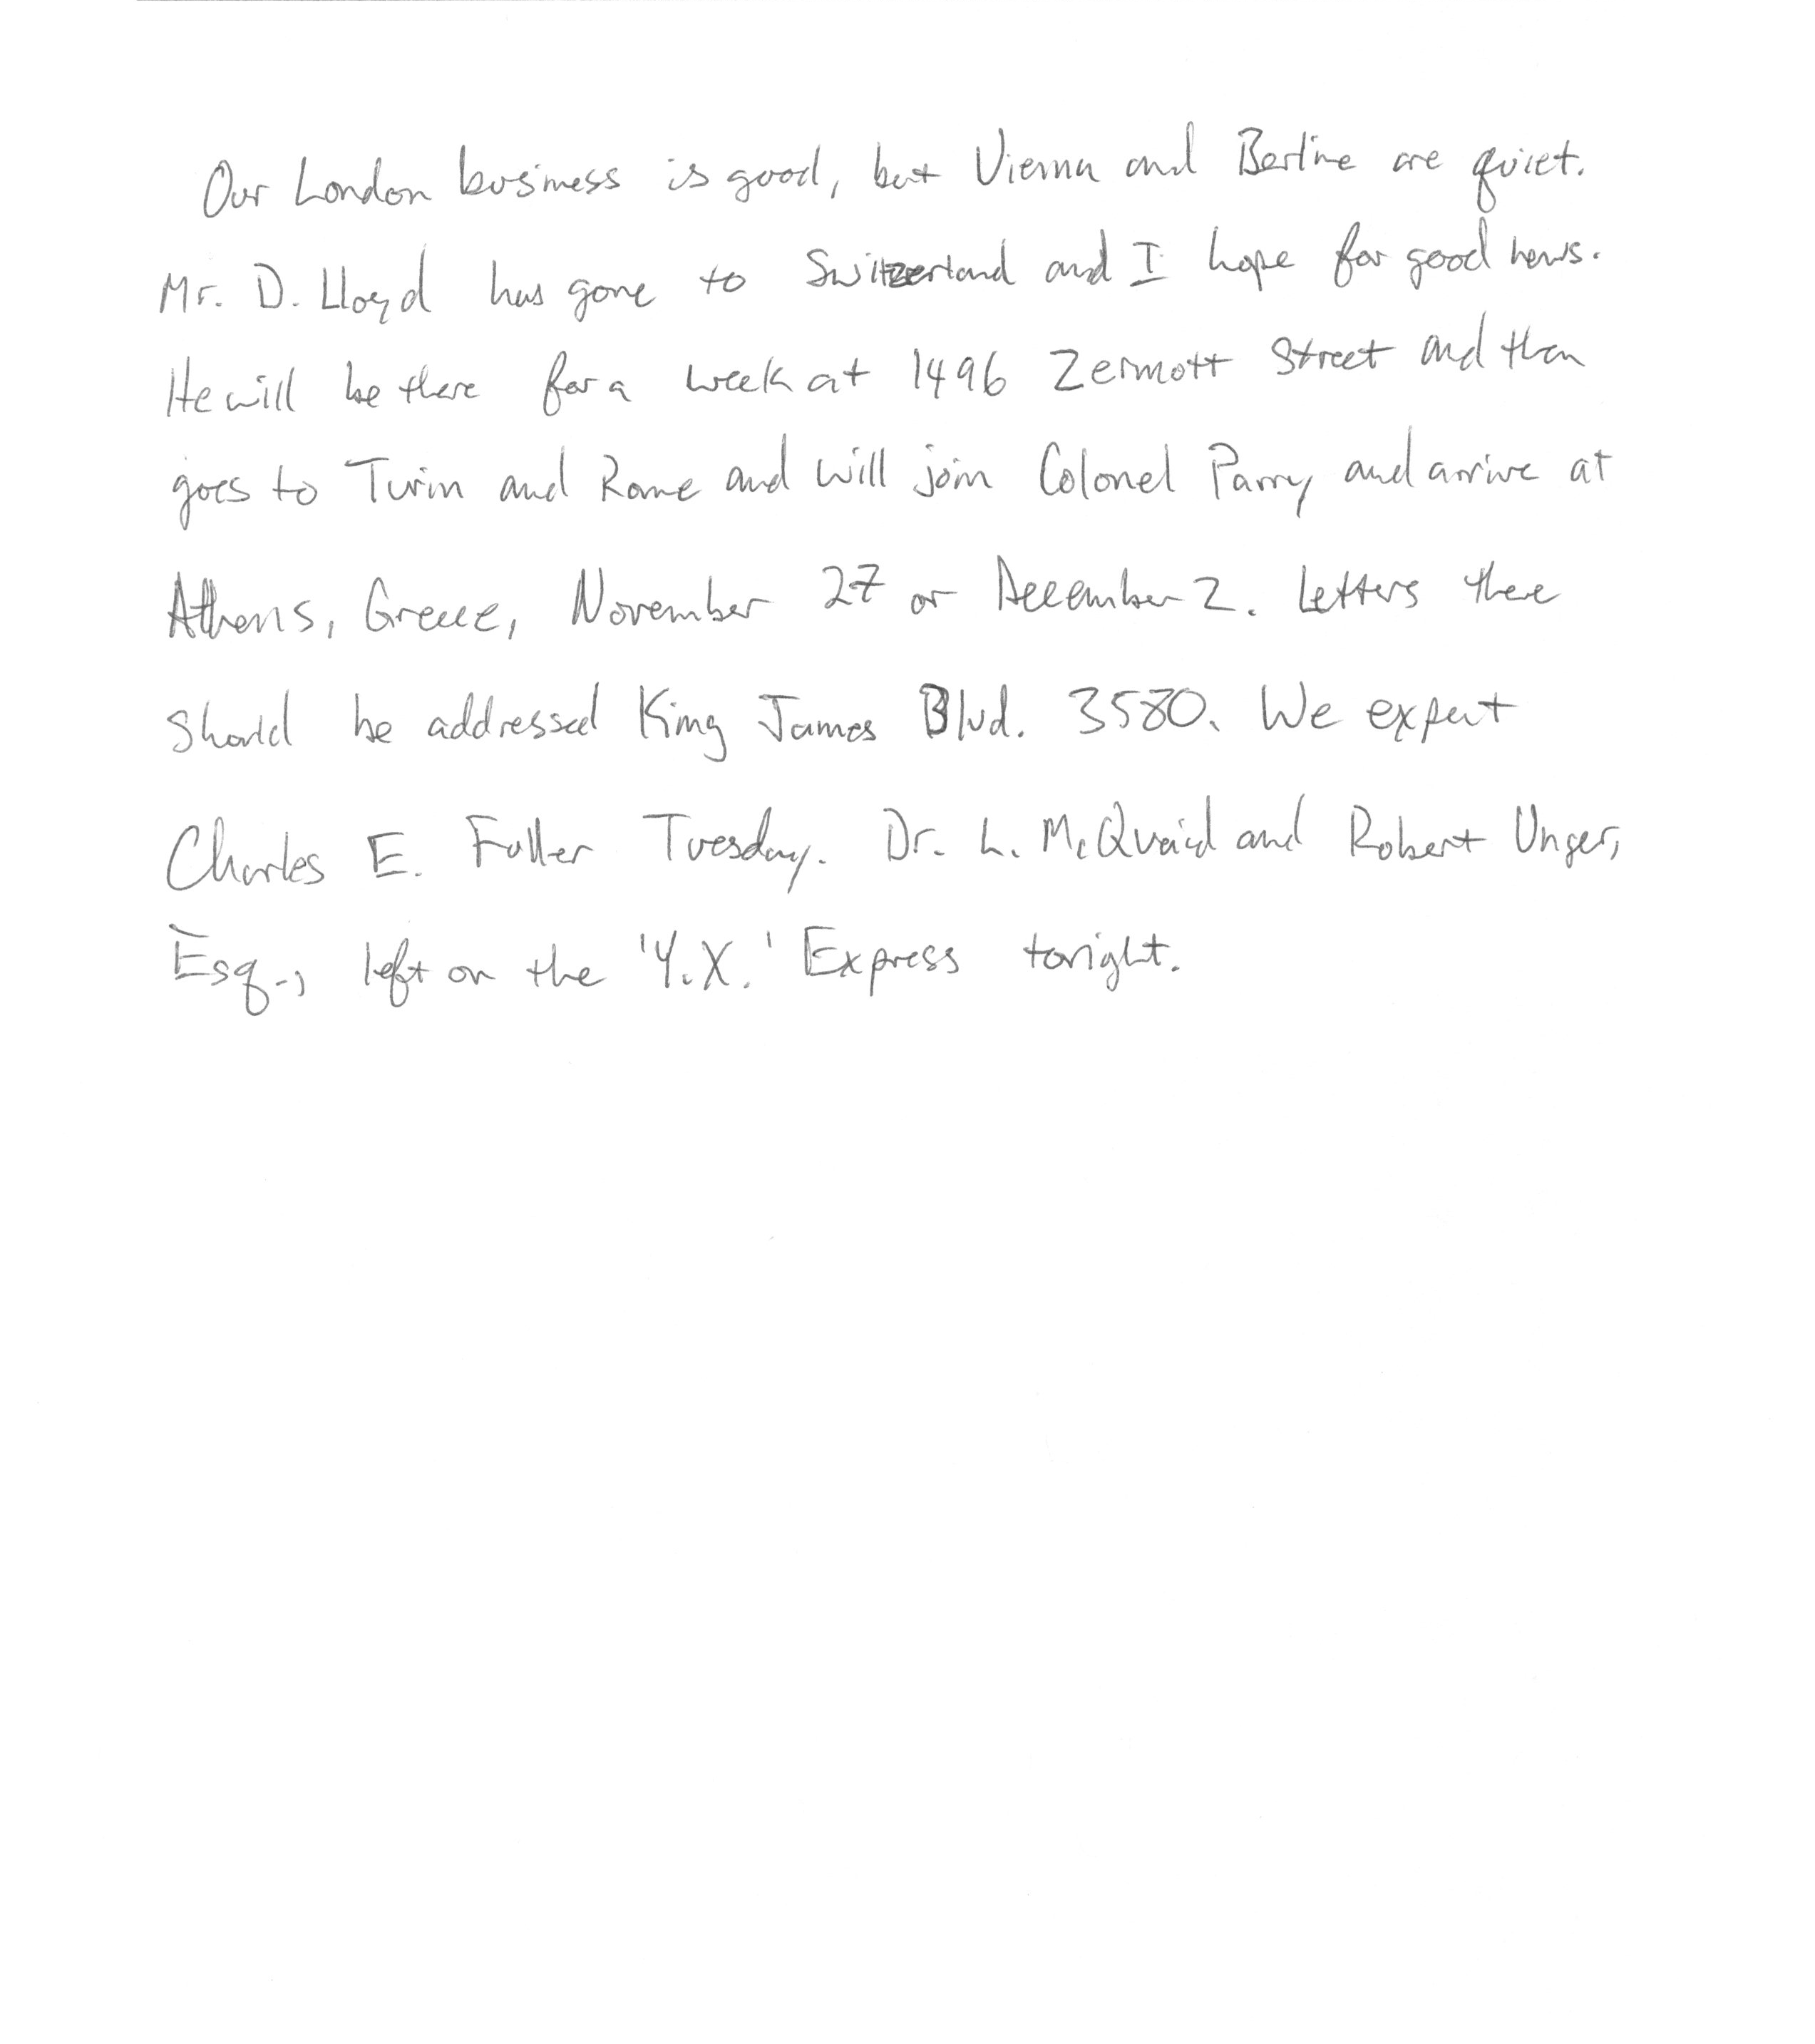 Our London business is good, but Vienna and Berline are quiet.
Mr. D. Lloyd has gone to Switzerland and I hope for good news.
He will be there for a week at 1496 Zermott Street and then
goes to Turin and Rome and will join Colonel Parry and arrive at
Athens, Greece, November 27 or December 2. Letters there
should be addressed King James Blvd. 3580. We expect
Charles E. Fuller Tuesday. Dr. L. McQuaid and Robert Unger,
Esq., left on the 'Y.X.' Express tonight.